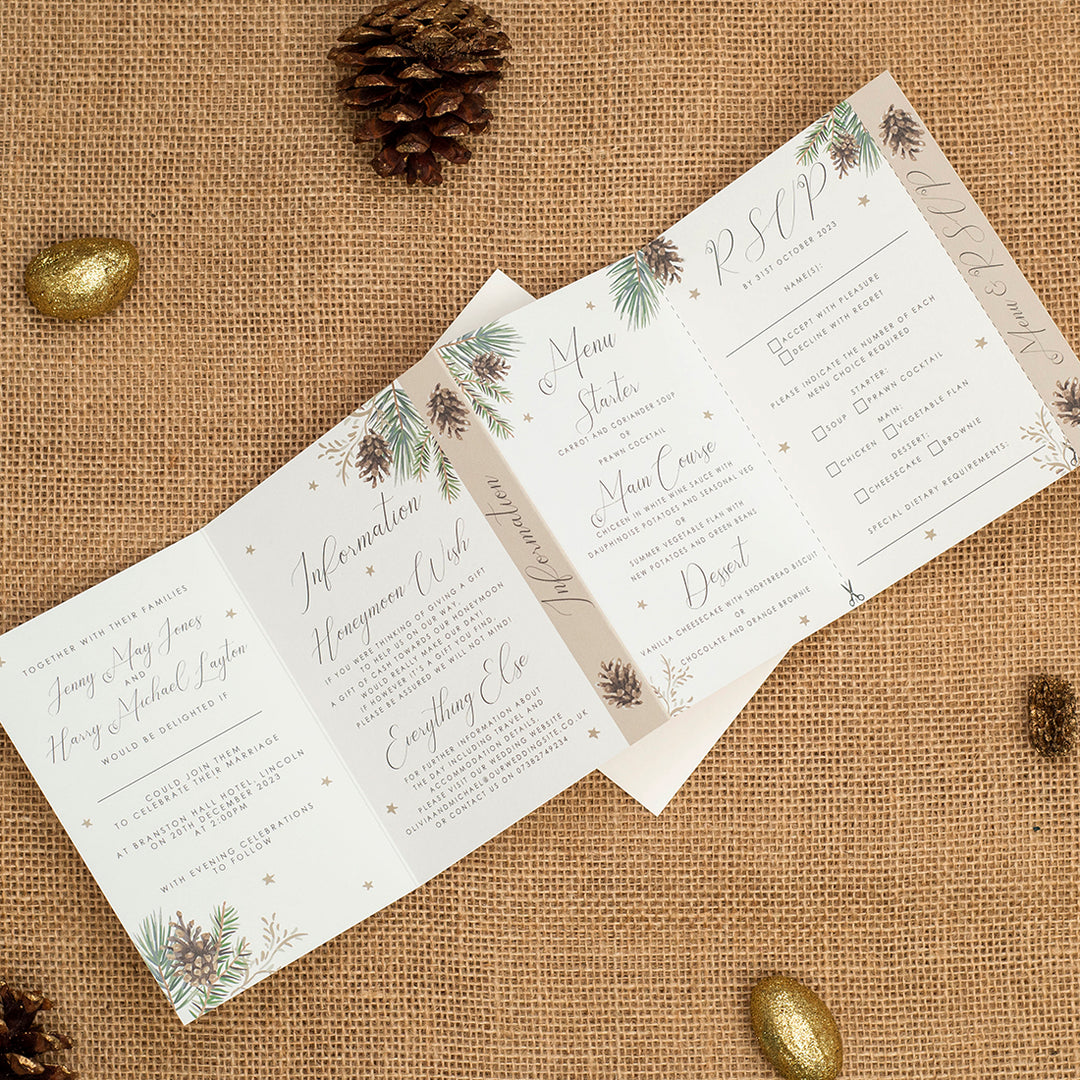 TOGETHER WITH THEIR FAMILIES
Jenny May Jones
AND
Harry Michael Layton
WOULD BE DELIGHTED IF
COULD JOIN THEM
TO CELEBRATE THEIR MARRIAGE
AT BRANSTON HALL HOTEL, LINCOLN
ON 20TH DECEMBER 2023
AT 2:00PM
WITH EVENING CELEBRATIONS
TO FOLLOW
Information
Honeymoon Wish
IF YOU WERE THINKING OF GIVING A GIFT
TO HELP US ON OUR WAY,
A GIFT OF CASH TOWARDS OUR HONEYMOON
WOULD REALLY MAKE OUR DAY!
IF HOWEVER IT'S A GIFT YOU FIND,
PLEASE BE ASSURED WE WILL NOT MIND!
Everything Else
FOR FURTHER INFORMATION ABOUT
THE DAY INCLUDING TRAVEL AND
ACCOMMODATION DETAILS,
PLEASE VISIT OUR WEDDING WEBSITE
OLIVIAANDMICHAEL@OURWEDDINGSITE.CO.UK
OR CONTACT US ON 07382749234
Information
Menu
Starter
CARROT AND CORIANDER SOUP
OR
PRAWN COCKTAIL
Main Course
CHICKEN IN WHITE WINE SAUCE WITH
DAUPHINOISE POTATOES AND SEASONAL VEG
OR
SUMMER VEGETABLE FLAN WITH
NEW POTATOES AND GREEN BEANS
Dessert
VANILLA CHEESECAKE WITH SHORTBREAD BISCUIT
OR
CHOCOLATE AND ORANGE BROWNIE
RSVP
BY 31ST OCTOBER 2023
NAME(S):
ACCEPT WITH PLEASURE
DECLINE WITH REGRET
PLEASE INDICATE THE NUMBER OF EACH
MENU CHOICE REQUIRED
STARTER:
SOUP PRAWN COCKTAIL
MAIN:
CHICKEN VEGETABLE FLAN
DESSERT:
CHEESECAKE BROWNIE
SPECIAL DIETARY REQUIREMENTS:
Menu & RSVP